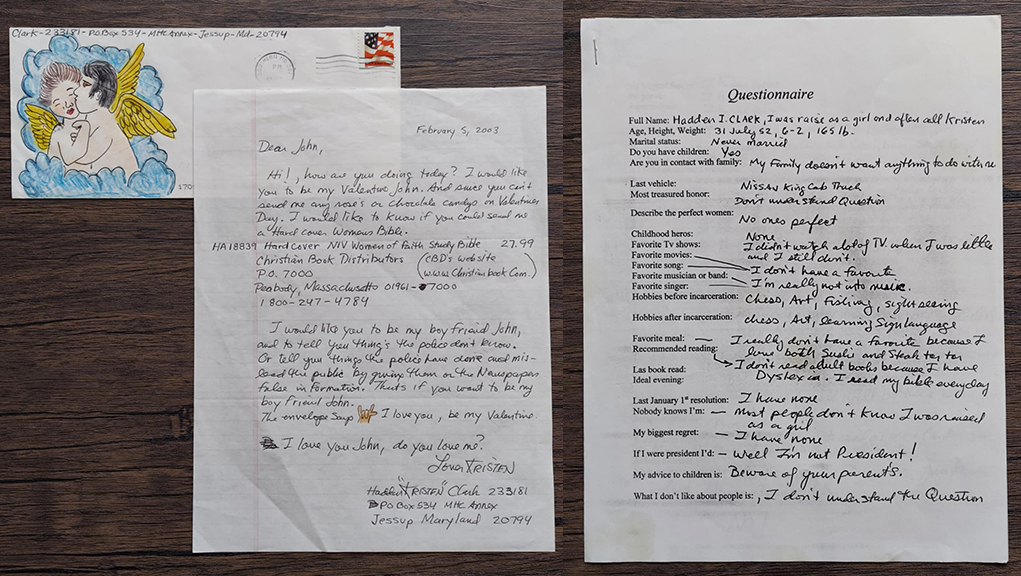 Clark-233181-P.O.Box 534-MHC Annex-Jessup-Md-20794
170
February 5, 2003
Dear John,
Hi!, how are you doing today? I would like
you to be my Valentine John. And since you can't
send me any rose's or chocolate candys on Valentines
Day. I would like to know if you could send me
a Hard cover Womens Bible.
HA18839 Hard Cover NIV Women of Faith Study Bible 27.99
Christian Book Distributors (CBD's website
P.O. 7000 www.Christianbook.Com.)
Peabody, Massachusetto 01961-7000
1800-247-4784
I would like you to be my boy friend John,
and to tell you thing's the police don't know.
Or tell you things the police have done and mis-
lead the public by giving them or the Newspapers
false in formation. Thats if you want to be my
boy friend John.
The envelope Says I love you, be my Valentine.
I love you John, do you love me?
Love, KRISTEN
Hadden "KRISTEN" Clark 233181
PO Box 534 MHC Annex
Jessup Maryland 20794
Questionnaire
Full Name: Hadden I. CLARK, I was raise as a girl and often call Kristen
Age, Height, Weight: 31 July 52, 6-2, 165 lb.
Marital status: Never married
Do you have children: Yes
Are you in contact with family: My Family doesn't want anything to do with me
Last vehicle: Nissan King Cab Truck
Most treasured honor: Don't understand Question
Describe the perfect women: No ones perfect
Childhood heros: None
Favorite Tv shows: I didn't watch alot of TV. when I was little
and I still don't.
Favorite movies:
Favorite song: I don't have a favorite
Favorite musician or band:
Favorite singer: I'm really not into music.
Hobbies before incarceration: Chess, Art, Fishing, sight seeing
Hobbies after incarceration: chess, Art, learning Sign language
Favorite meal: — I really don't have a favorite because I
love both Sushi and Steak tar tar
Recommended reading:
Las book read: I don't read adult books because I have
Dyslexia. I read my bible everyday
Ideal evening:
Last January 1st resolution: I have none
Nobody knows I'm: — Most people don't know I was raised
as a girl
My biggest regret: — I have none
If I were president I'd: — Well I'm not President!
My advice to children is: Beware of your parent's.
What I don't like about people is: , I don't understand the Question